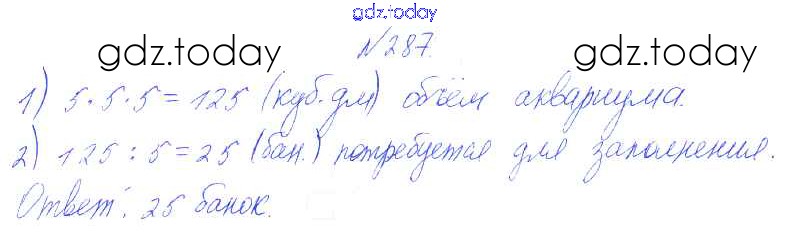 gdz.today
gdz.today №287. gdz.today
1) 5·5·5=125 (куб.дм) объём аквариума.
2) 125:5=25 (бан.) потребуется для заполнения.
Ответ: 25 банок.